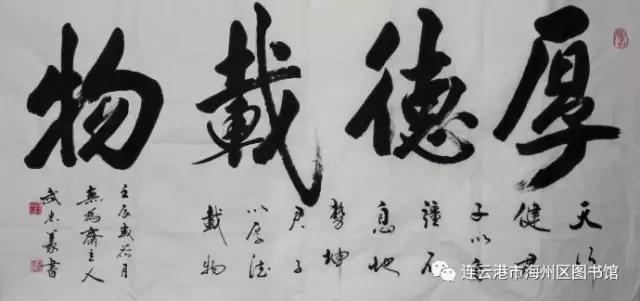 厚德載物
天行
健君
子以自
強不
息地
勢坤
君子
以厚德
載物
壬辰年荷月
無為齋主人
武忠義書
连云港市海州区图书馆